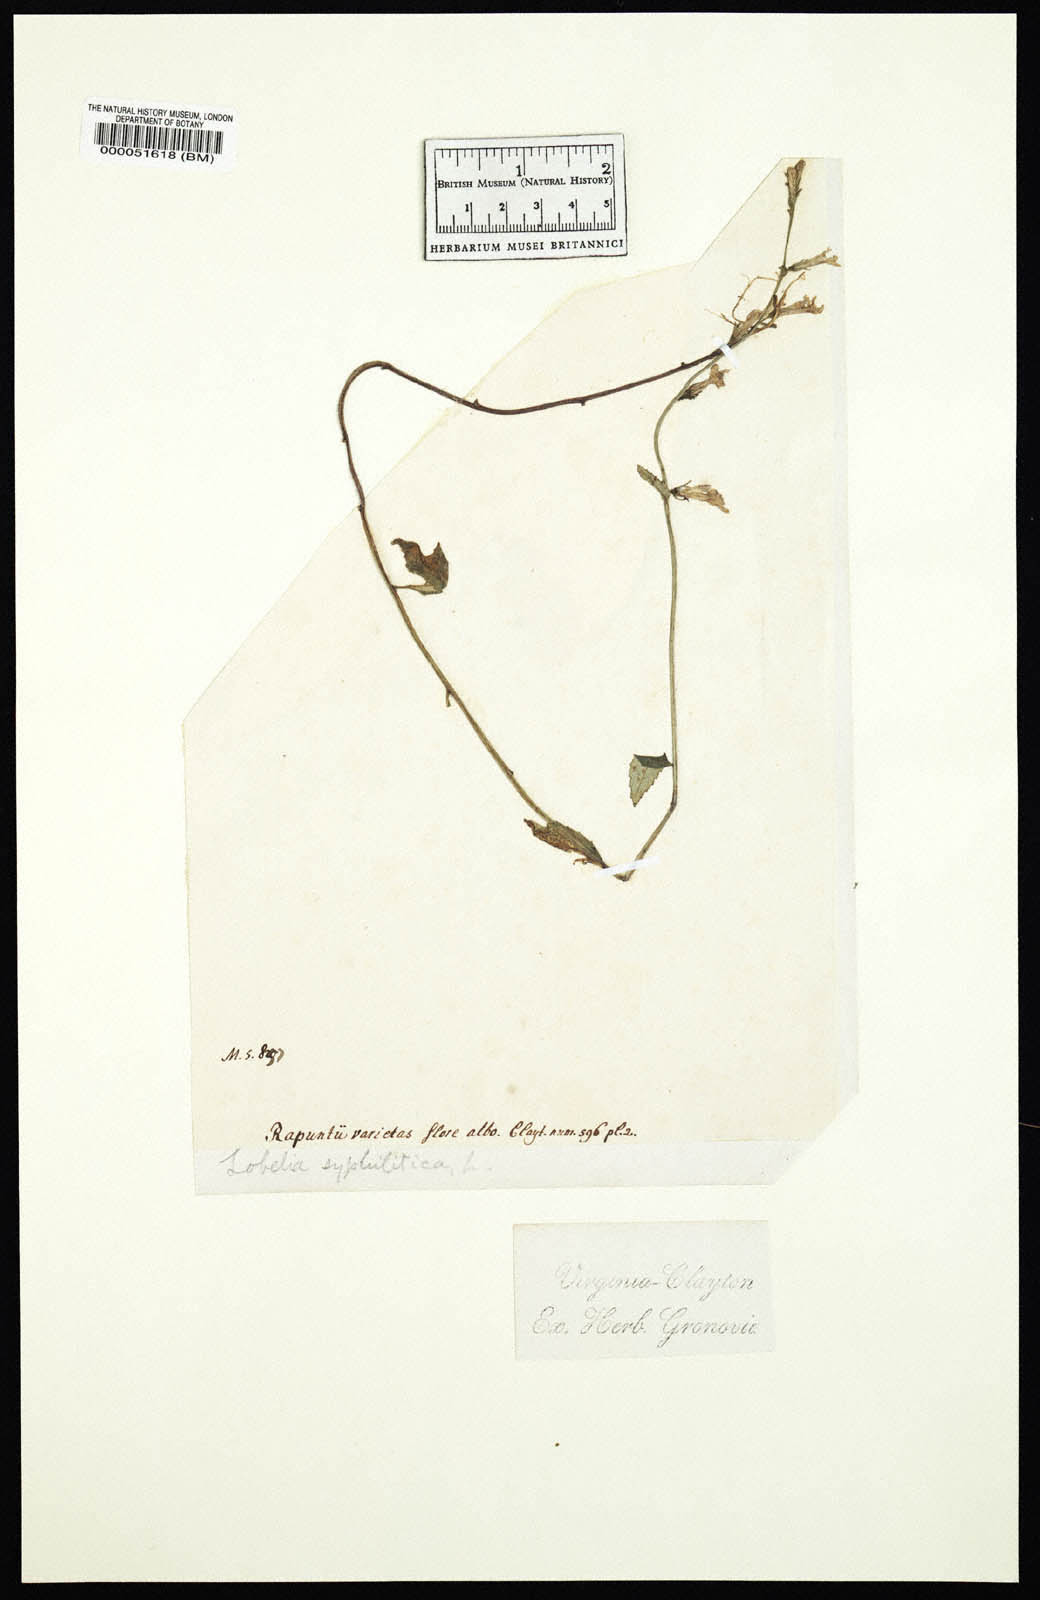 THE NATURAL HISTORY MUSEUM, LONDON
DEPARTMENT OF BOTANY
000051618 (BM)
1 2
BRITISH MUSEUM (NATURAL HISTORY)
1 2 3 4 5
HERBARIUM MUSEI BRITANNICI
M. S.
Rapuntii varietas flore albo. Clayt. num. 596 pl. 2.
Lobelia syphilitica, L.
Virginia-Clayton
Ex. Herb. Gronovii